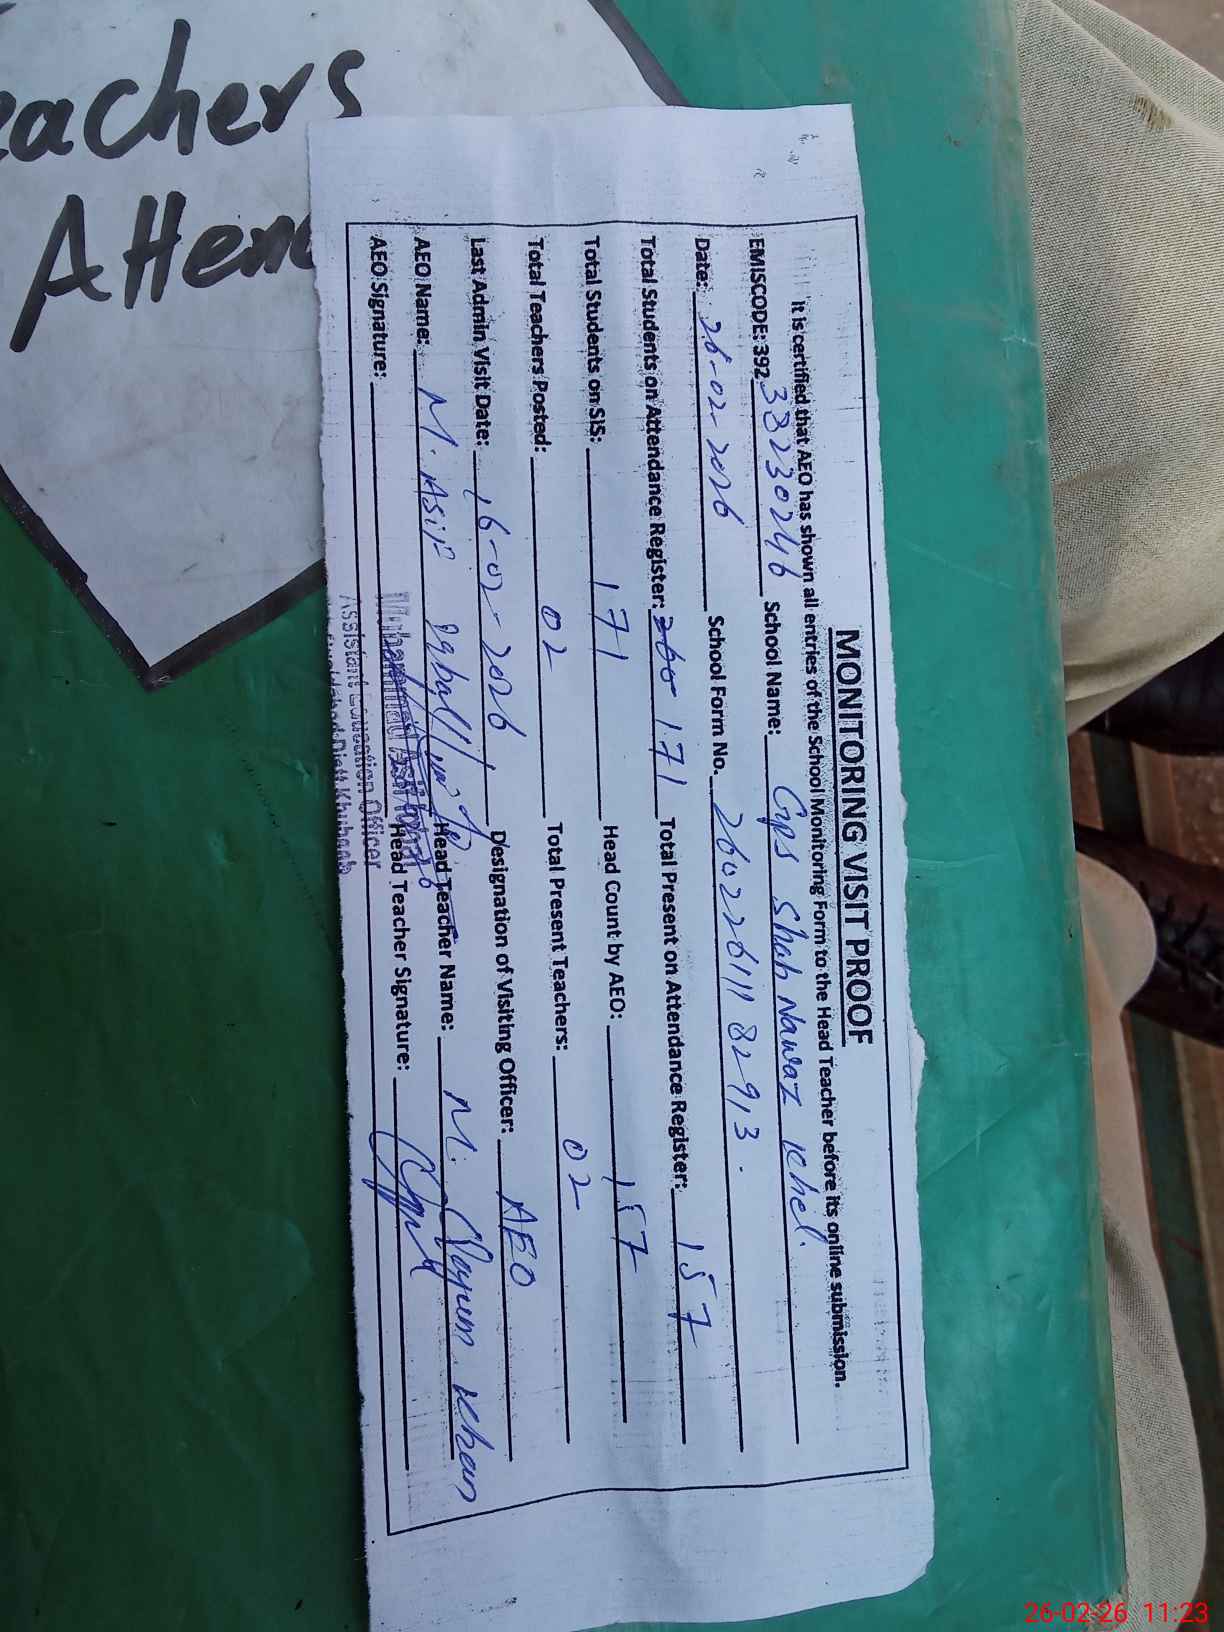 eachers
Atten
MONITORING VISIT PROOF
It is certified that AEO has shown all entries of the School Monitoring Form to the Head Teacher before its online submission.
EMISCODE: 392 38230246 School Name: GPS Shah Nawaz Khel.
Date: 26-02-2026 School Form No. 26022611182913.
Total Students on Attendance Register: 171 Total Present on Attendance Register: 157
Total Students on SIS: 171 Head Count by AEO: 157
Total Teachers Posted: 02 Total Present Teachers: 02
Last Admin Visit Date: 16-02-2026 Designation of Visiting Officer: AEO
AEO Name: M. Asif Iqbal Head Teacher Name: M. Qayum Khan
AEO Signature: Head Teacher Signature:
Muhammad Asif Iqbal
Assistant Education Officer
Distt Khushab
26-02-26 11:23